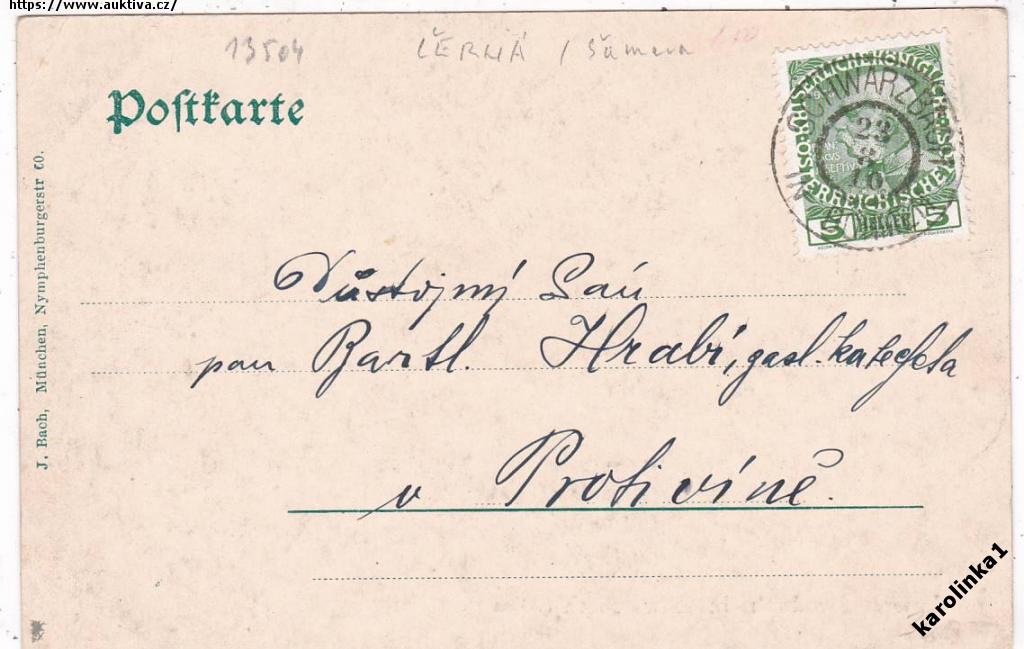 https://www.auktiva.cz/
13504 ČERNÁ / Šumava
Postkarte
J. Bach, München, Nymphenburgerstr 60.
KAISERLICHE KÖNIGLICHE
ÖSTERREICHISCHE
SCHWARZBACH
22
5 HELLER 5
Důstojný Pán
pan Bartl. Hrabí, katecheta
v Protivíně.
karolinka1